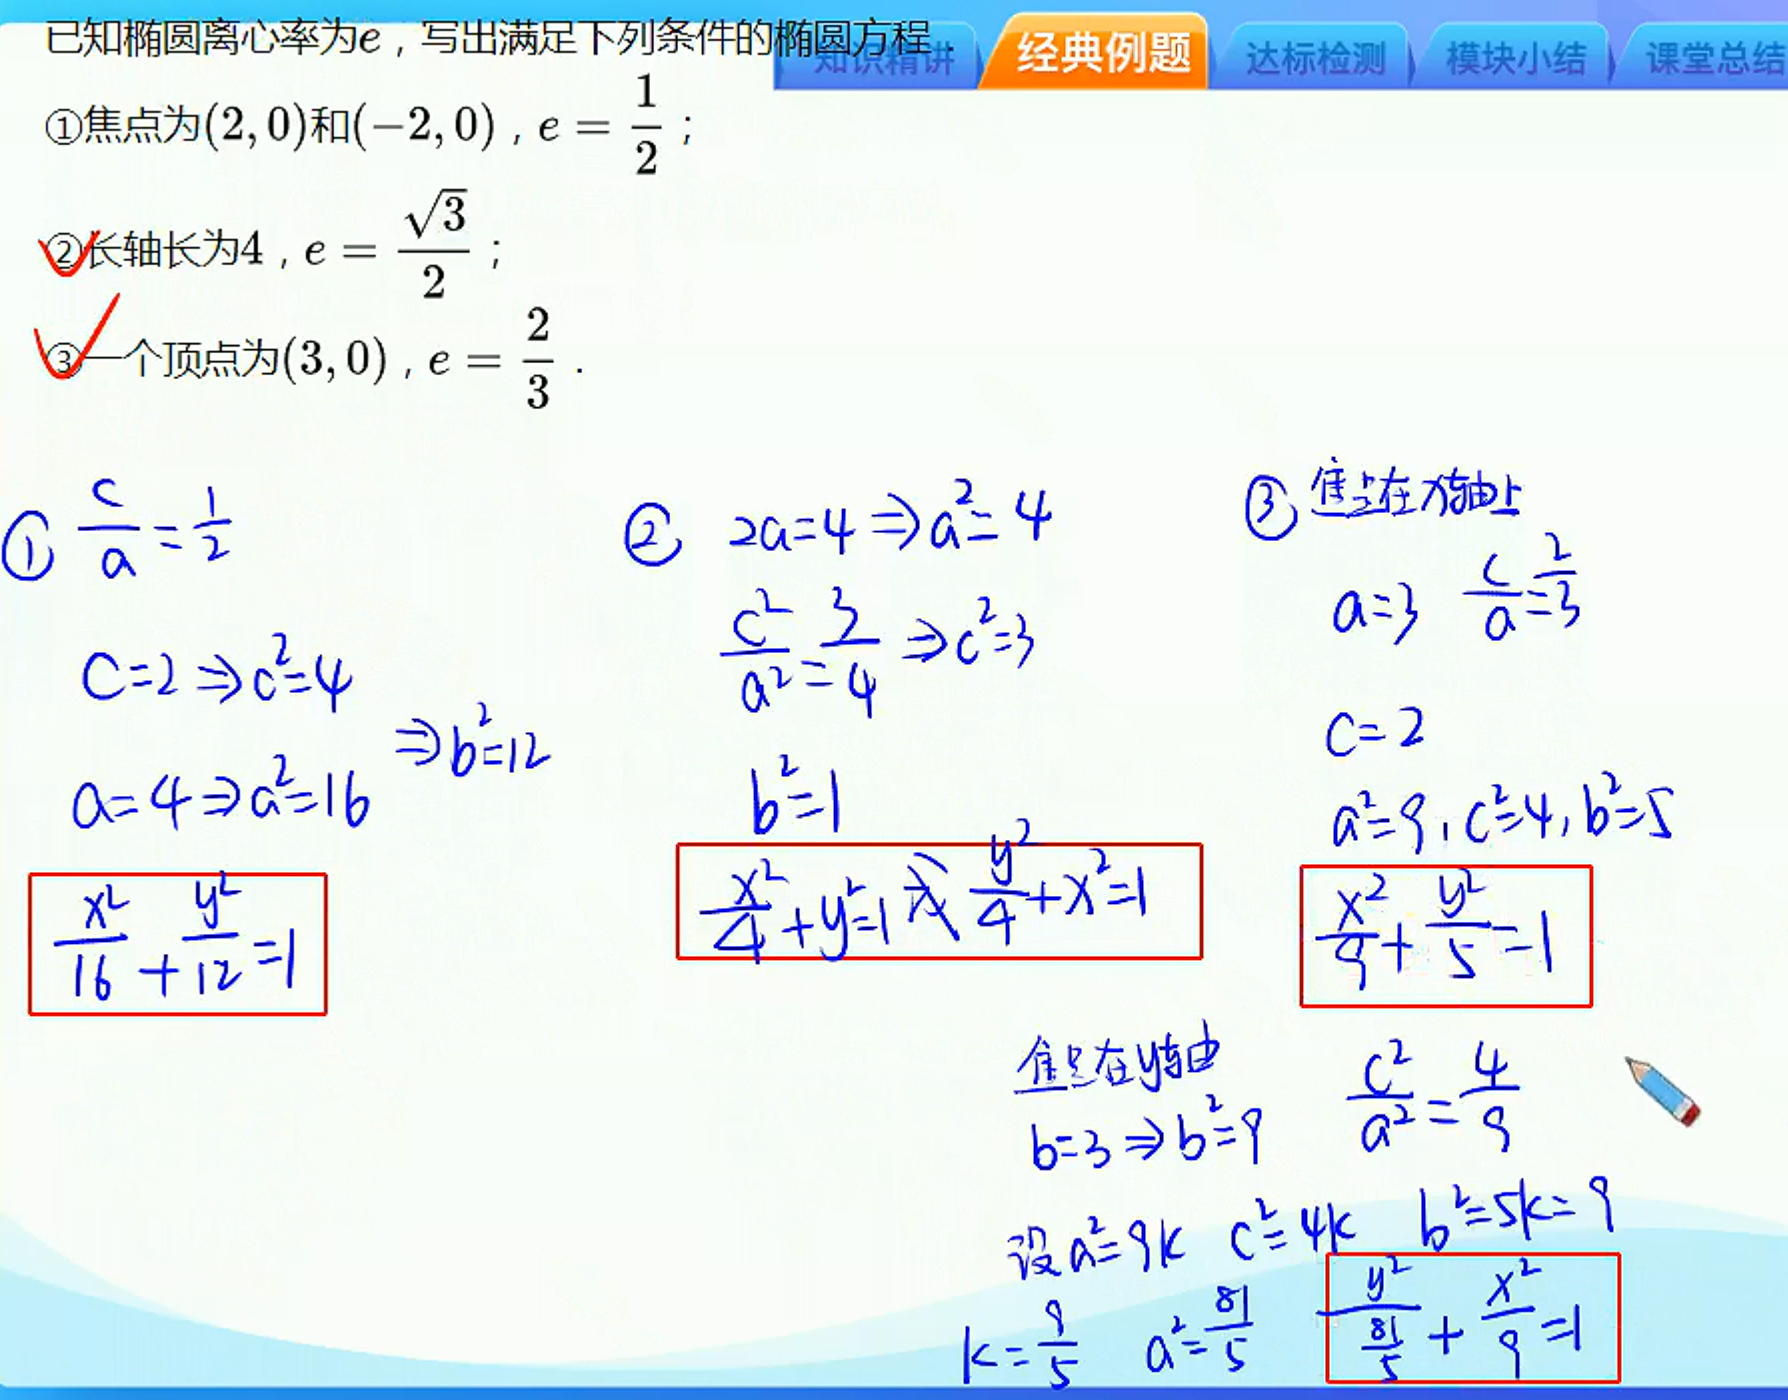 已知椭圆离心率为e，写出满足下列条件的椭圆方程．
知识精讲 经典例题 达标检测 模块小结 课堂总结
①焦点为(2,0)和(−2,0)，e = 1/2；
②长轴长为4，e = √3/2；
③一个顶点为(3,0)，e = 2/3．
① c/a = 1/2
c=2 ⇒ c²=4
a=4 ⇒ a²=16
⇒ b²=12
x²/16 + y²/12 = 1
② 2a=4 ⇒ a²=4
c²/a² = 3/4 ⇒ c²=3
b²=1
x²/4 + y²=1 或 y²/4 + x²=1
③ 焦点在x轴上
a=3 c/a = 2/3
c=2
a²=9, c²=4, b²=5
x²/9 + y²/5 = 1
焦点在y轴
b=3 ⇒ b²=9 c²/a² = 4/9
设a²=9k c²=4k b²=5k=9
k=9/5 a²=81/5 y²/(81/5) + x²/9 = 1